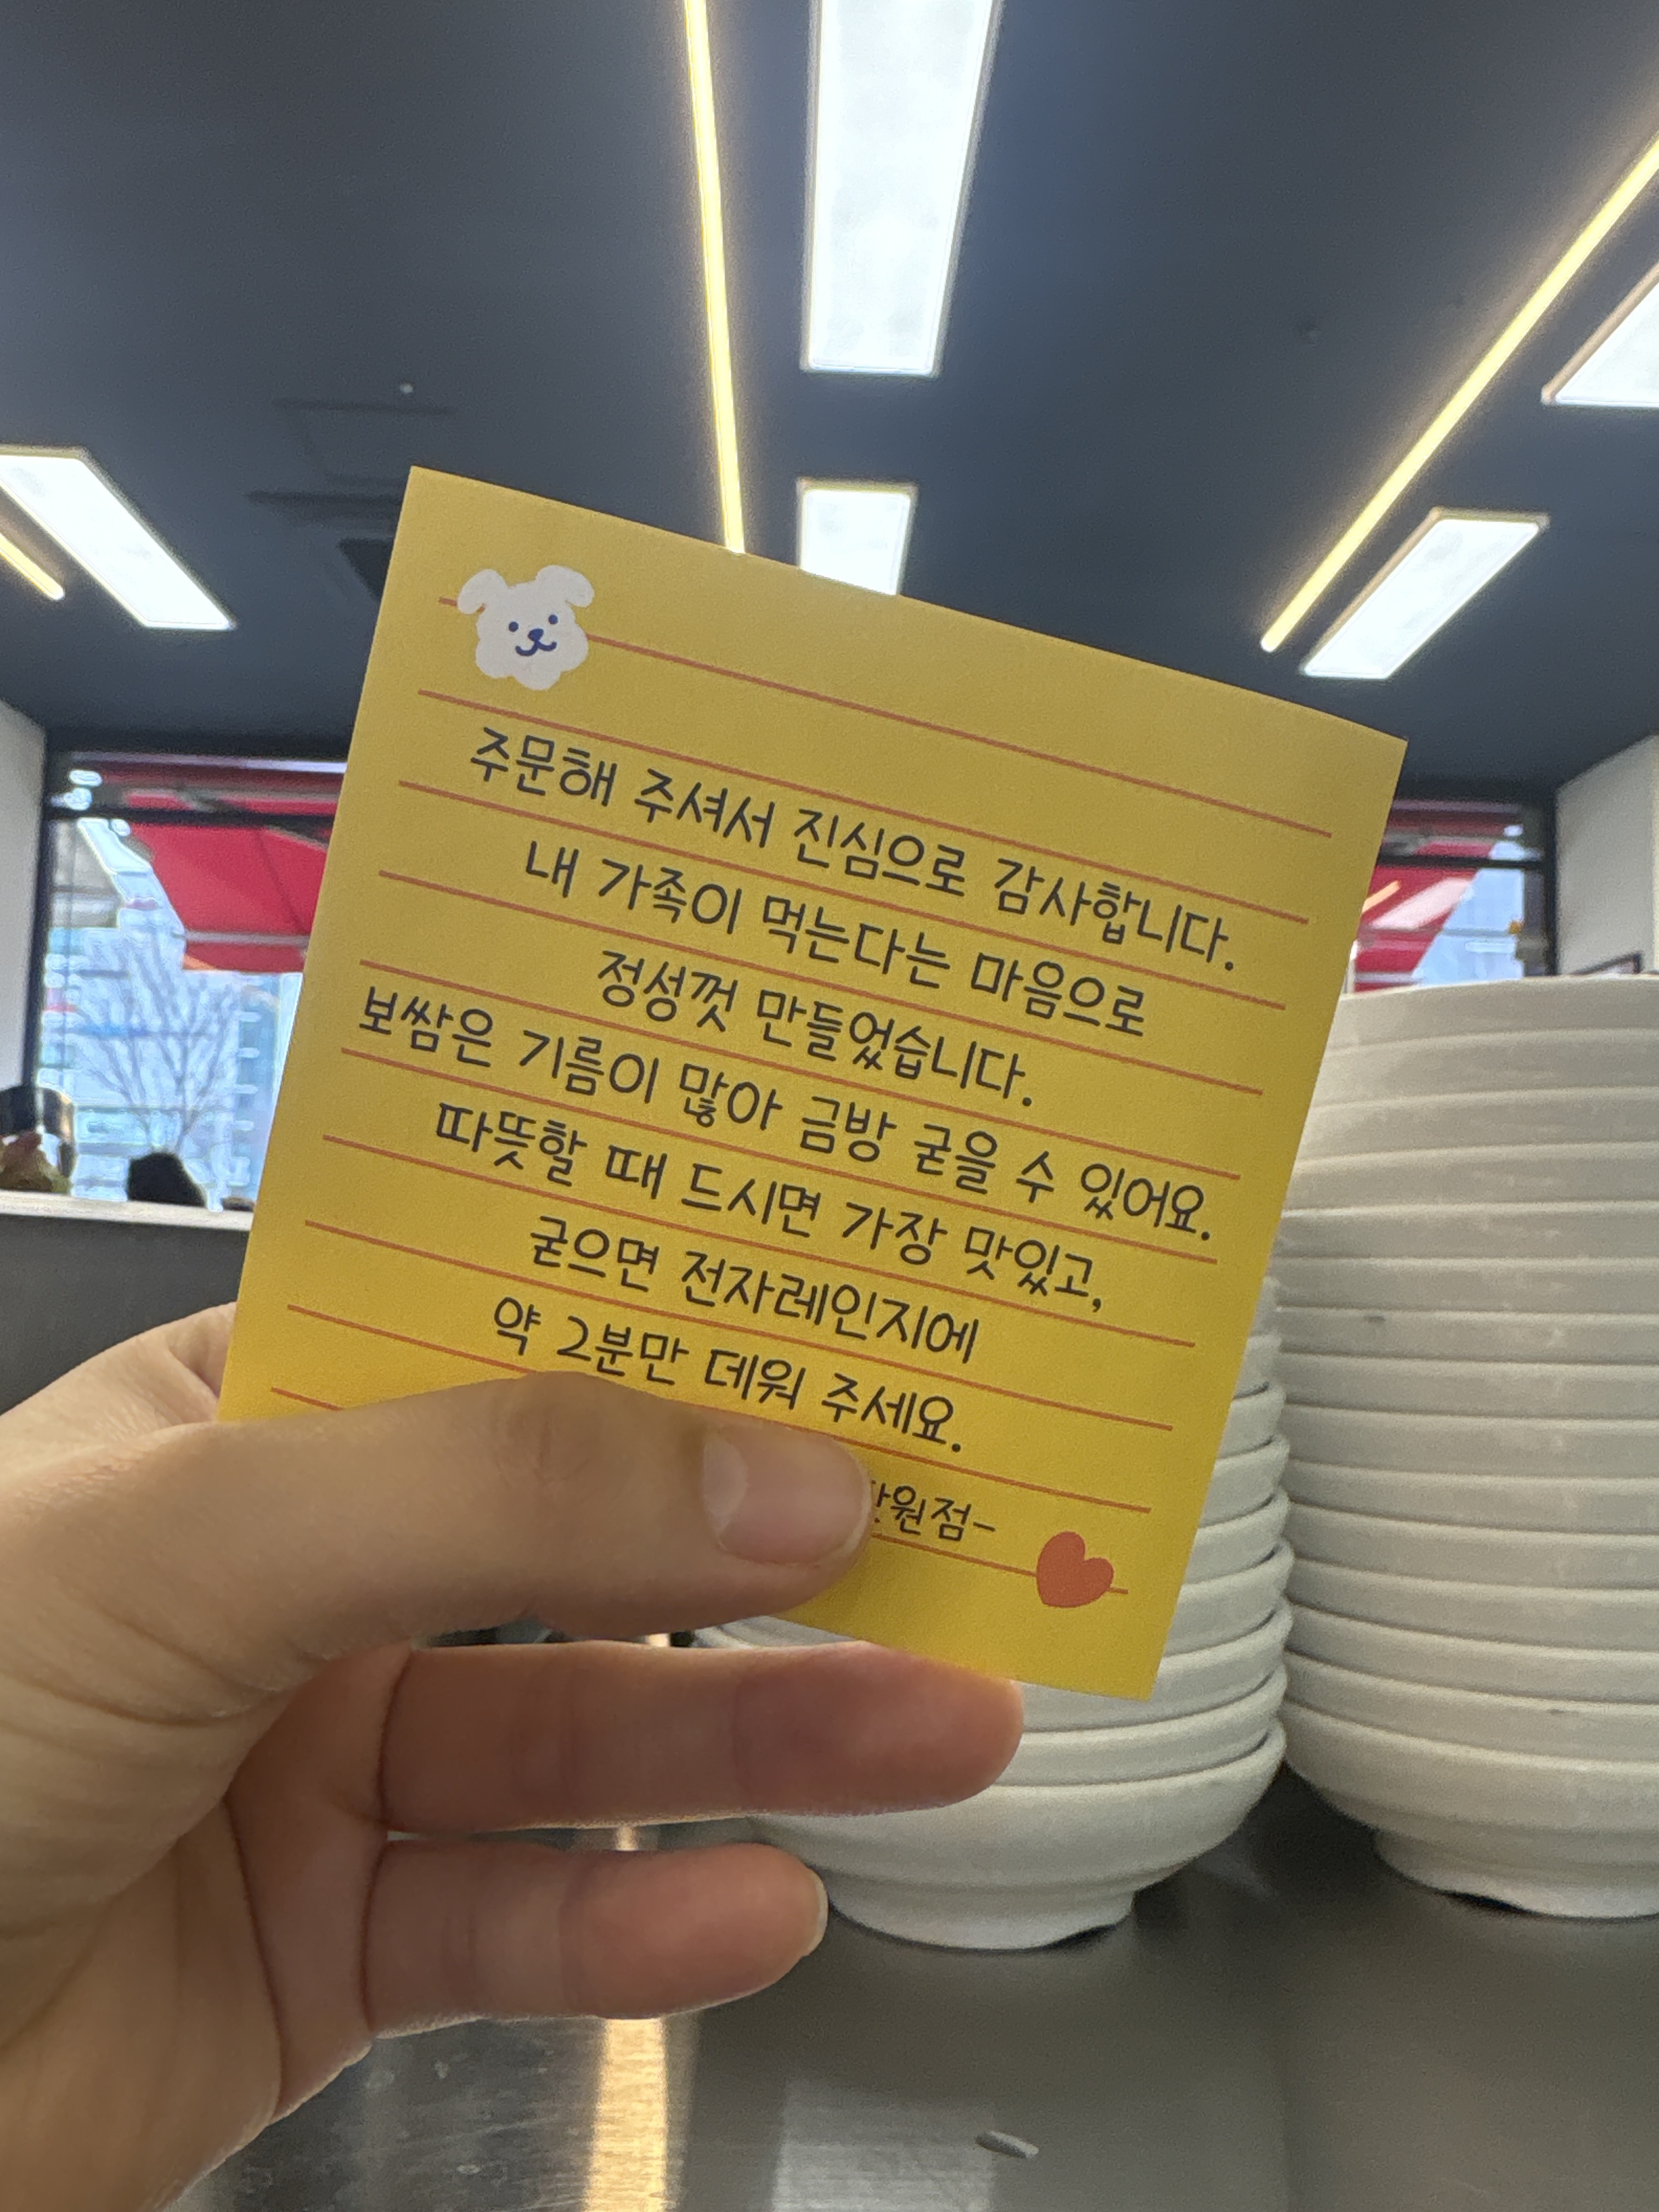 주문해 주셔서 진심으로 감사합니다.
내 가족이 먹는다는 마음으로
정성껏 만들었습니다.
보쌈은 기름이 많아 금방 굳을 수 있어요.
따뜻할 때 드시면 가장 맛있고,
굳으면 전자레인지에
약 2분만 데워 주세요.